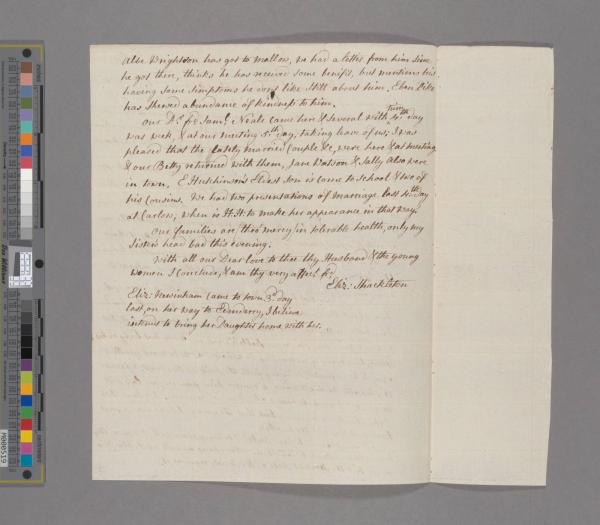 Abm. Wrightson has got to Mallow, we had a letter from him since
he got there, thinks he has received some benefit, but mentions his
having some simptoms he does not like still about him. Eben. Pike
has shewed abundance of kindness to him.
our Dr. frd. Saml. Neale came here & several with him 4th day
was week, & at our meeting 5th day, taking leave of us; I was
pleased that the lately married Couple &c, were here & at meeting
& our Betty returned with them, Jane Watson & Sally also were
in town. E Hutchinson's Eldest Son is come to School & two of
his Cousins. We had two presentations of Marriage last 4th day
at Carlow, when is H:H: to make her appearance in that way.
our families are thro' mercy in tolerable health, only my
Sisters head bad this evening.
With all our Dear love to thee thy Husband & the young
women I conclude, & am thy very afft. frd.
Eliz: Shackleton
Eliz: Newenham came to town 3d. day
last, on her way to Edenderry, I believe
intends to bring her Daughter home with her.
M000519